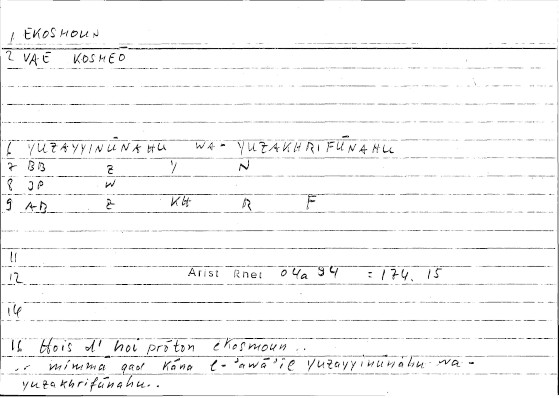 1 EKOSMOUN
2 VAE KOSMEŌ
6 YUZAYYINŪNAHU WA- YUZAKHRIFŪNAHU
7 BB Z Y N
8 JP W
9 AB Z KH R F
11
12 Arist Rhet 04a 34 = 174. 15
14
16 Hois d' hoi prōton ekosmoun..
.. mimmā qad kāna l-'awā'il yuzayyinūnahu wa-
yuzakhrifūnahu..